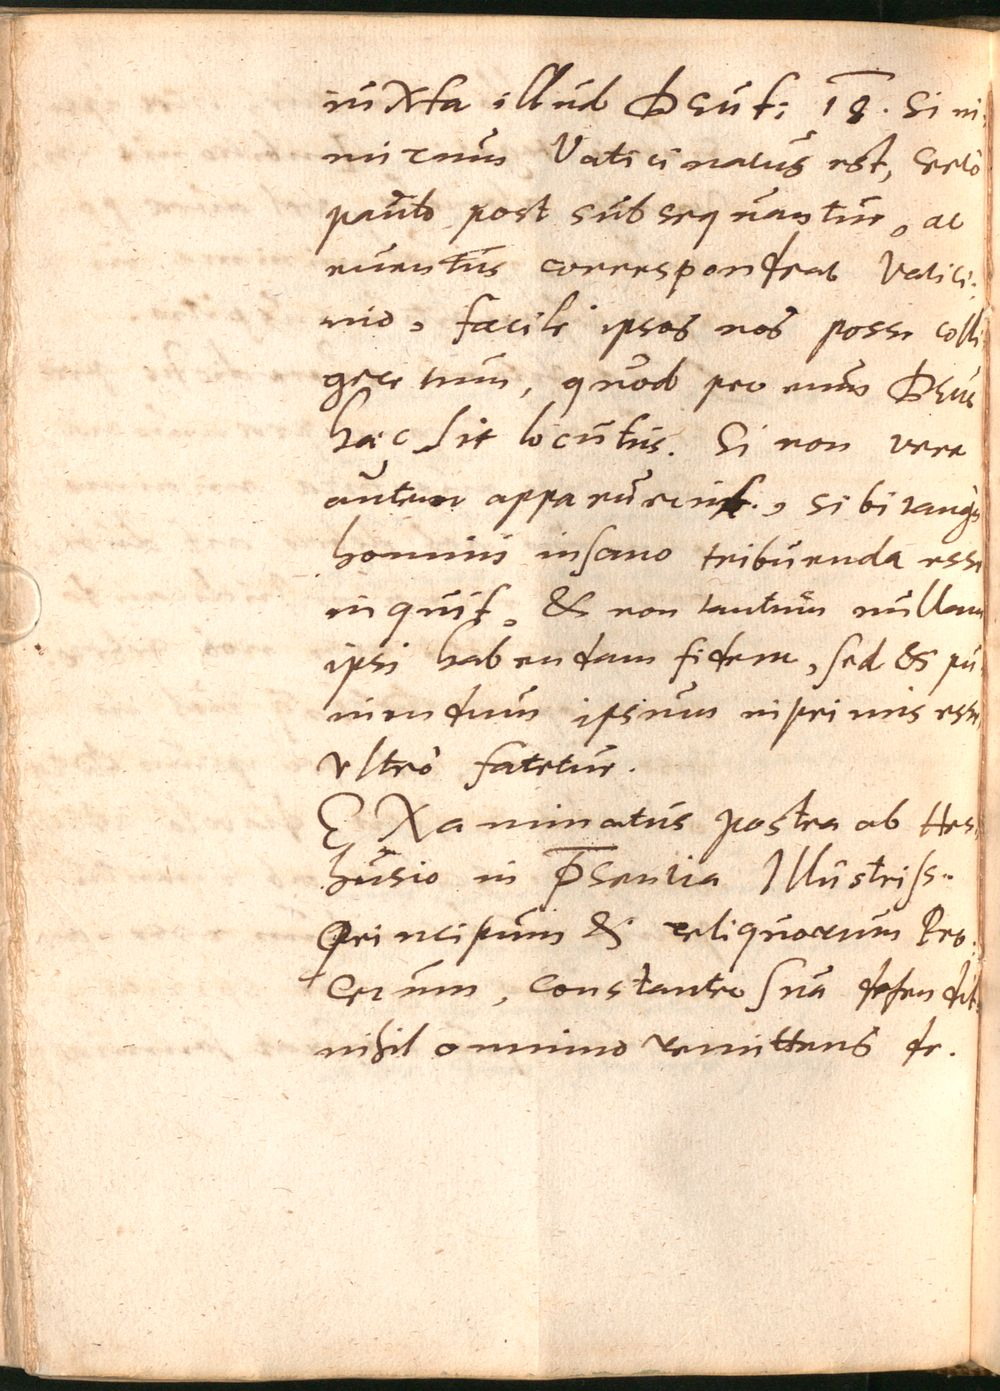 iuxta illud Deut: 18. Si ni-
mirum Vaticinatus est, certo
paulo post subsequantur, ac
euentus correspondeat Vatici-
nio, facile ipsos nos posse colli
gere tum, quod per eum Deus
hæc sit locutus. Si non vera
autem apparuerint, sibi tanq̃
homini insano tribuenda esse
inquit, & non tantum nullam
ipsi habendam fidem, sed & pu-
niendum ipsum inprimis esse
ultro fatetur.
Examinatus postea ab Hes-
husio in p̄sentia Illustriss.
Principum & reliquorum Pro-
cerum, constanter sua defendit
nihil omnino remittens de.